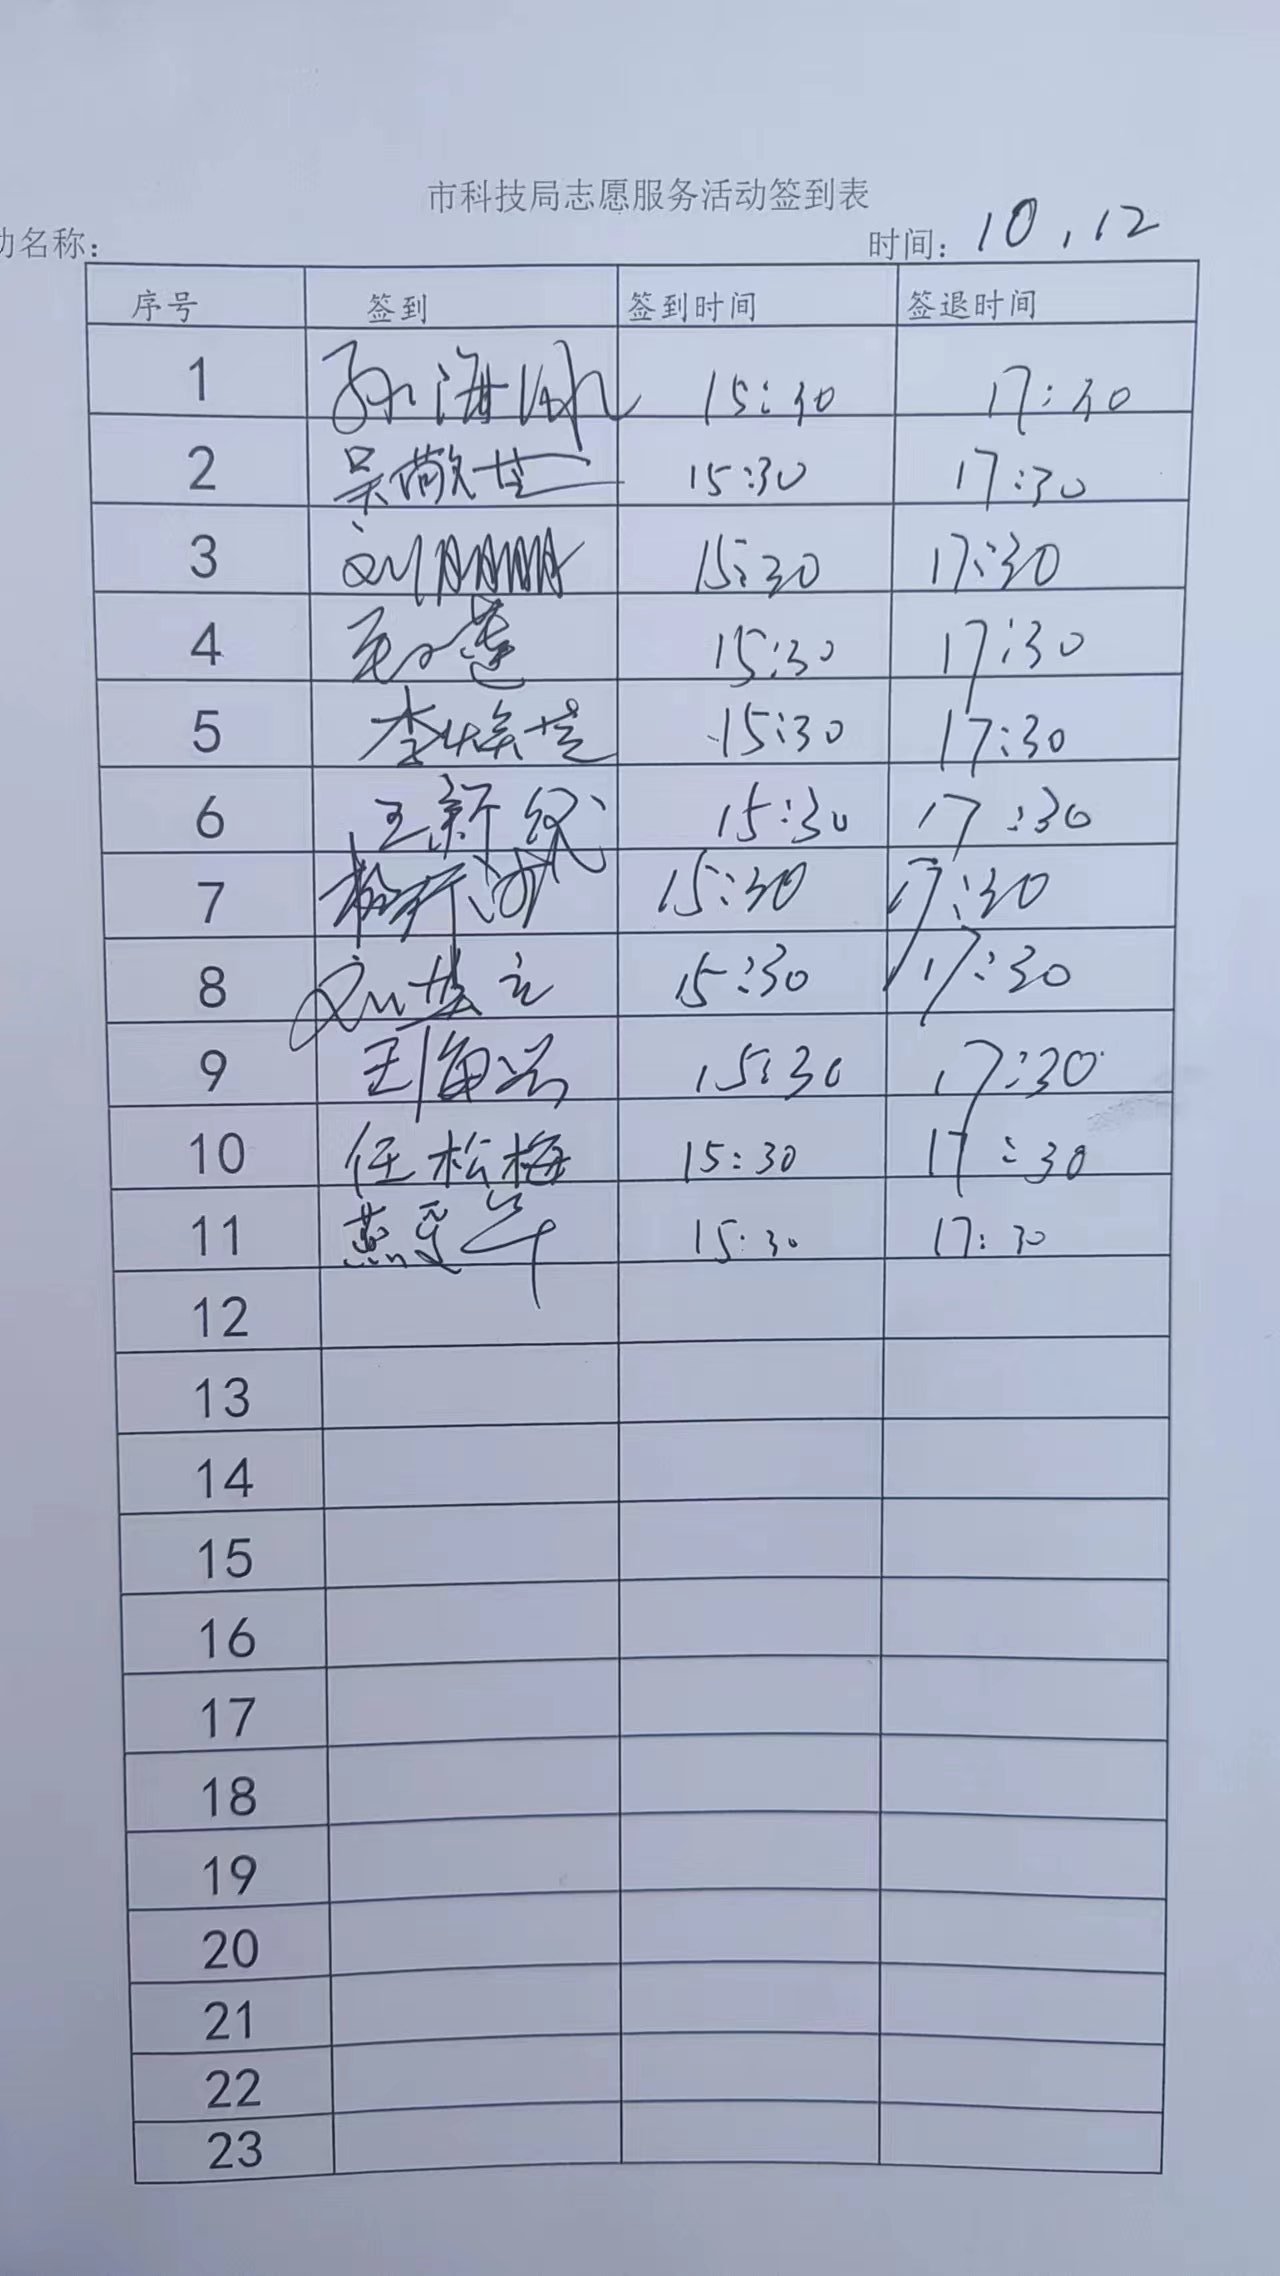 市科技局志愿服务活动签到表
动名称： 时间：10.12
序号 签到 签到时间 签退时间
1 孙海 15:30 17:30
2 吴敬芝 15:30 17:30
3 刘 15:30 17:30
4 15:30 17:30
5 李 15:30 17:30
6 王新 15:30 17:30
7 15:30 17:30
8 刘 15:30 17:30
9 王海 15:30 17:30
10 任松梅 15:30 17:30
11 燕 15:30 17:30
12
13
14
15
16
17
18
19
20
21
22
23